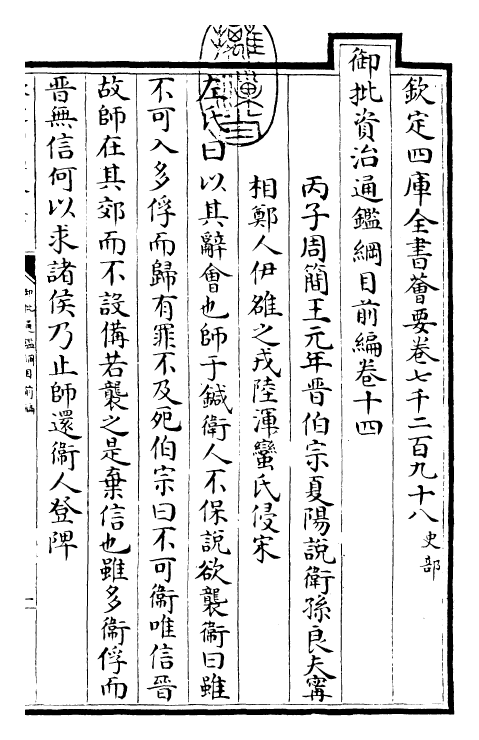 欽定四庫全書薈要卷七千二百九十八 史部
御批資治通鑑綱目前編卷十四
丙子周簡王元年晉伯宗夏陽説衛孫良夫甯
相鄭人伊雒之戎陸渾蠻氏侵宋
左氏曰以其辭會也師于鍼衛人不保説欲襲衛曰雖
不可入多俘而歸有罪不及死伯宗曰不可衛唯信晉
故師在其郊而不設備若襲之是棄信也雖多衛俘而
晉無信何以求諸侯乃止師還衛人登陴